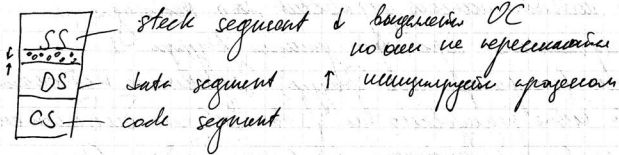 SS stack segment ↓ выделяет ОС
но они не пересекаются
DS data segment ↑ инициируется процессом
CS code segment